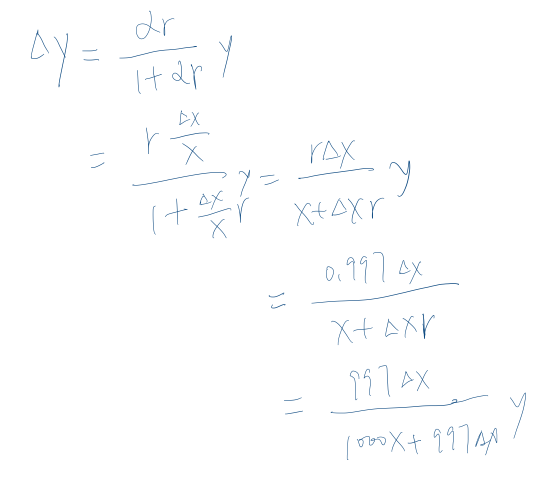 Δy = αr / (1 + αr) y
= (r Δx/x) / (1 + Δx/x r) y = rΔx / (x + Δx r) y
= 0.997 Δx / (x + Δx r)
= 997 Δx / (1000x + 997 Δx) y